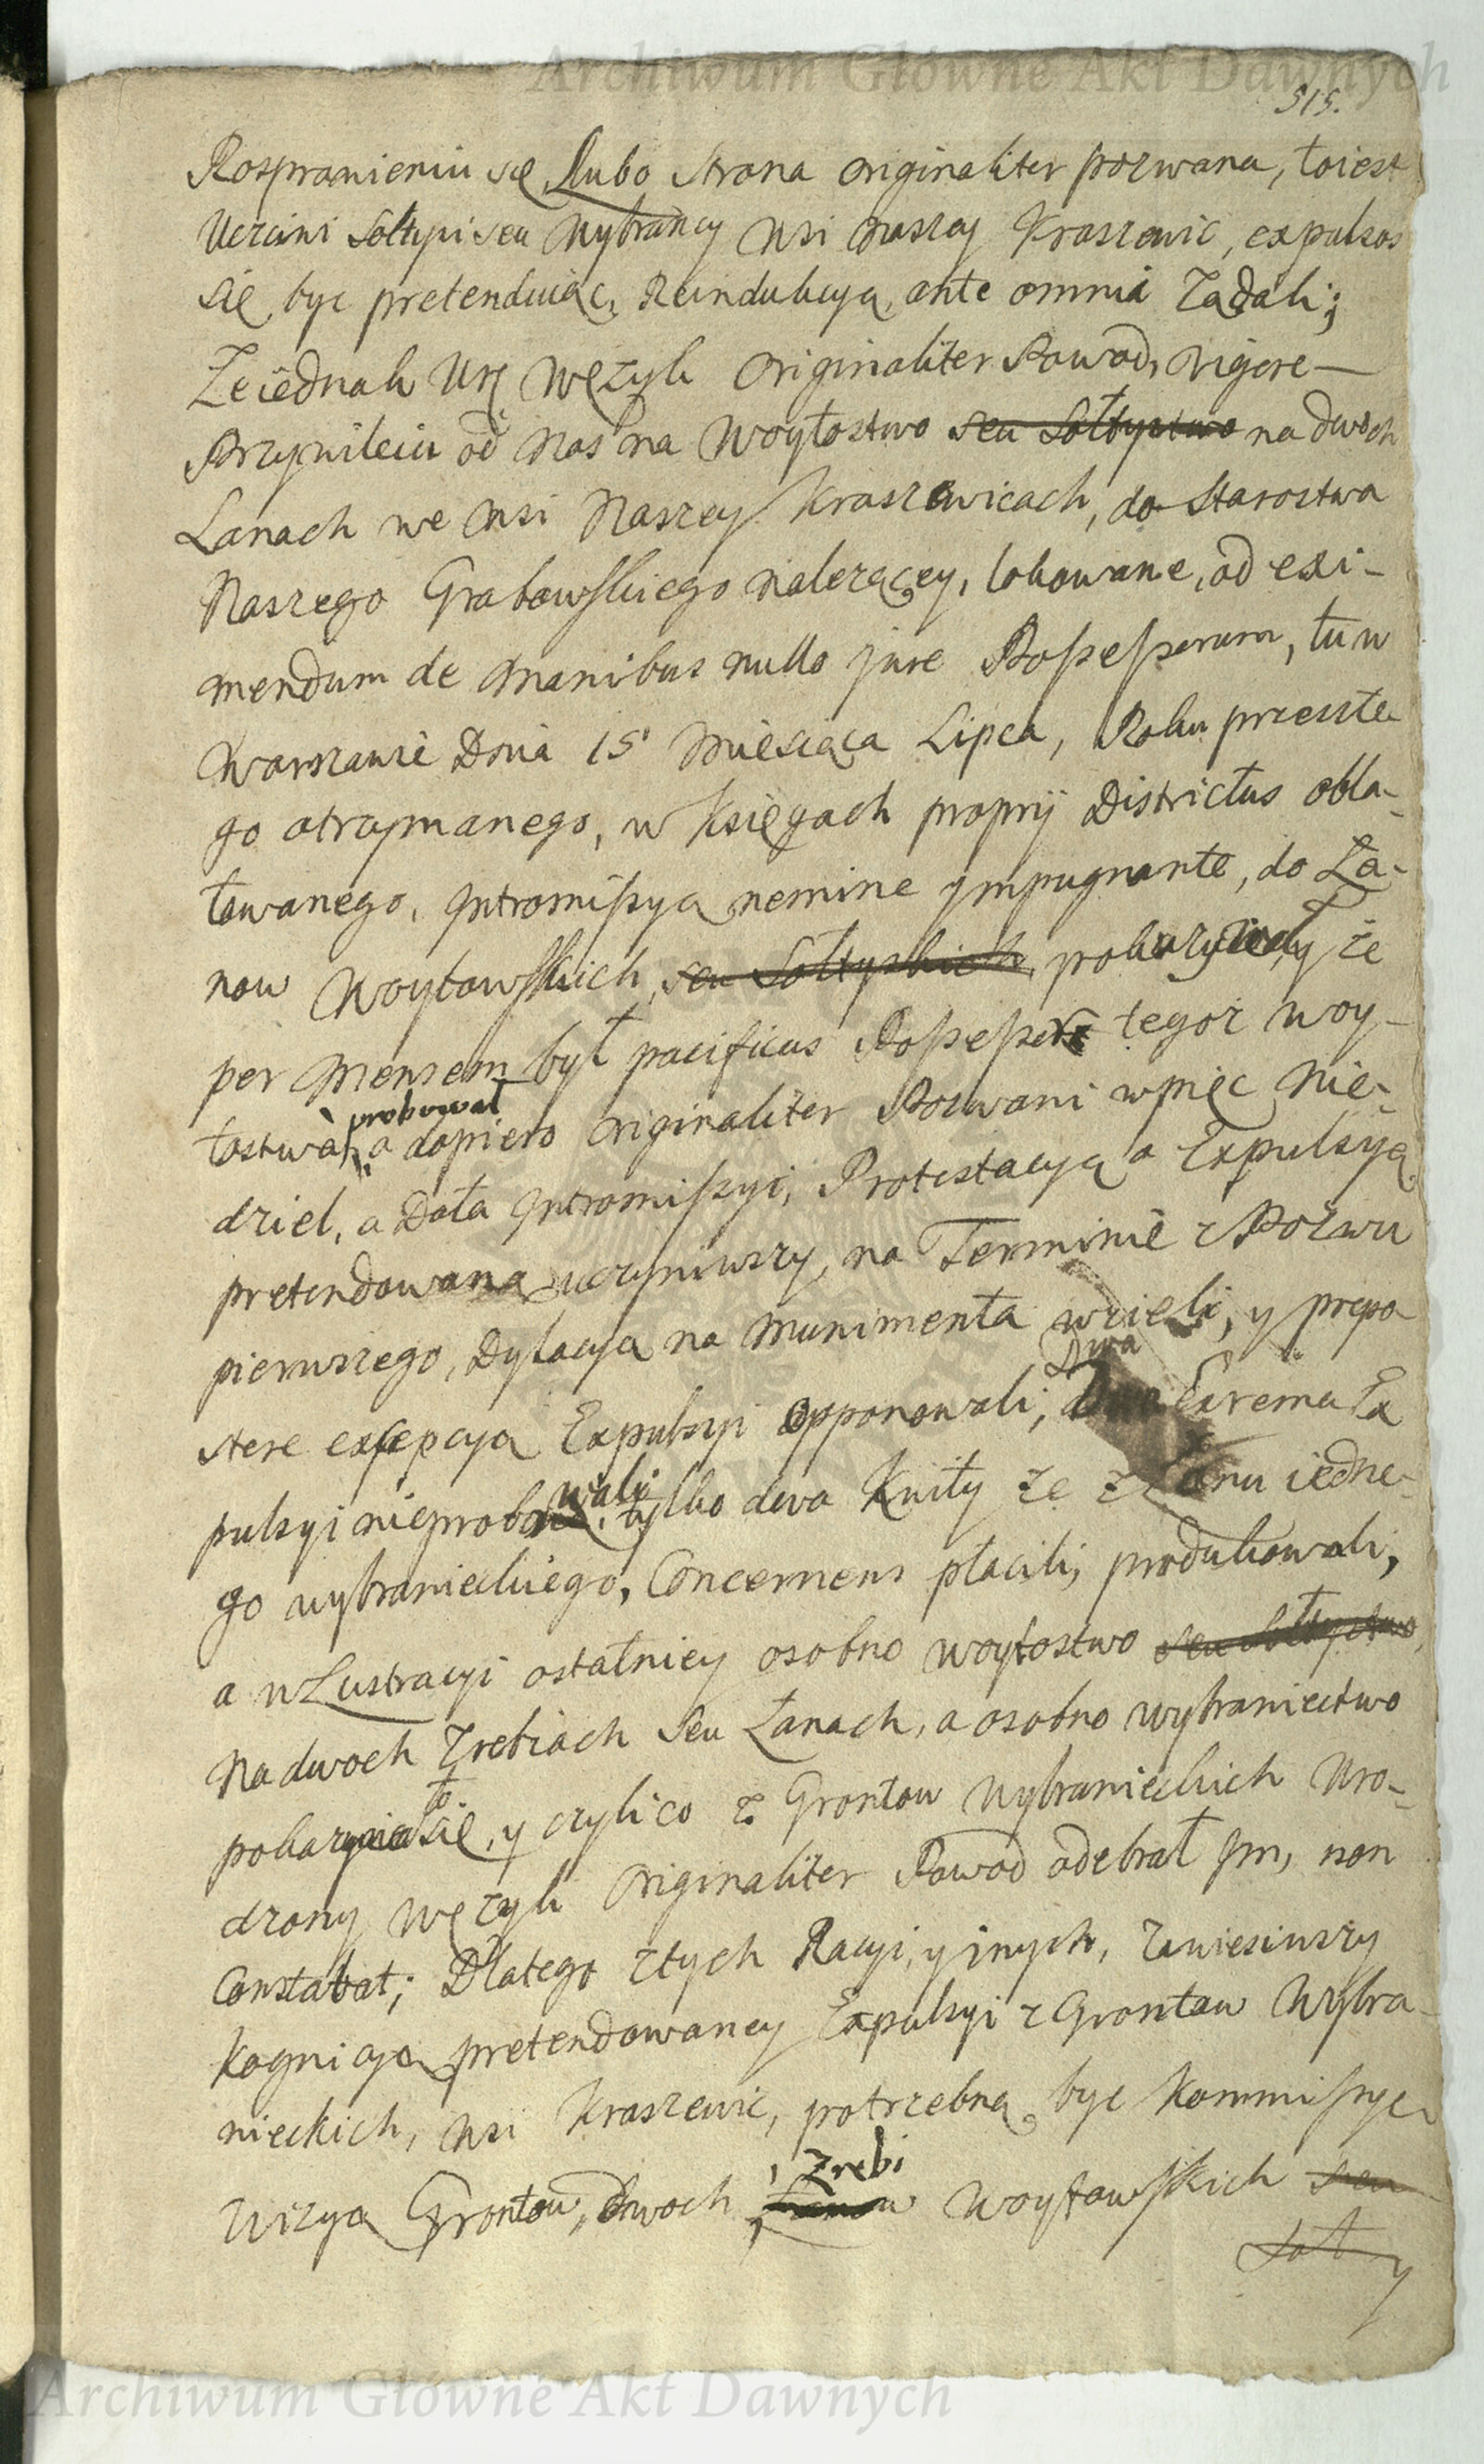 Archiwum Główne Akt Dawnych
515.
Rosprawieniu się, Lubo Strona originaliter pozwana, toiest
Uczciwi Sołtysi seu Wybrancy wsi Naszey Kraszewic, expulsos
się byc pretenduiąc, Reindukcyą ante omnia Ządali;
Ze iednak Ur. Wężyk originaliter Powod, vigore
Przywileiu od Nas na Woytostwo seu Sołtystwo na dwoch
Łanach we wsi Naszey Kraszewicach, do Starostwa
Naszego Grabowskiego nalezącey, lokowane, ad exi-
mendum de manibus nullo jure Possessorum, tu w
Warszawie Dnia 15 Miesiąca Lipca, Roku przeszłe
go otrzymanego, w Księgach proprij Districtus obla-
towanego, Intromissyą nemine ympugnante, do Ła-
now Woytowskich, seu Sołtyskich, y że
per Mensem był pacificus Possessor tegoz Woy-
probował
tostwa, a dopiero originaliter Pozwani w pięc Nie-
dziel, a Data Intromissyi, Protestacyą o Expulsyą
pretendowaną uczyniwszy, na Terminie z Pozwu
pierwszego, Dylacyą na Munimenta wzieli, y propo
Dwa
stere excepcyą Expulsyi opponowali, Exrema Ex
wali
pulsyi nieprobo, tylko dwa Kwity ze z Łanu iedne-
go wybranieckiego, Concernens płacili, produkowali,
a w Lustracyi ostatniey osobno woytostwo seu Sołtystwo
Na dwoch Zrebiach seu Łanach, a osobno wybraniectwo
to.
się, y czyli co z Grontow Wybranieckich Uro-
dzony Wężyk originaliter Powod odebrał Im, non
Constabat; Dlatego z tych Racyi, y inych, zawiesiwszy
Kognicyą pretendowaney Expulsyi z Grontow Wybra-
nieckich, wsi Kraszewic, potrzebną byc Kommissyę
Zrebi
Wizyą Grontow, dwoch Łanow Woytowskich seu
Sołty
Archiwum Główne Akt Dawnych